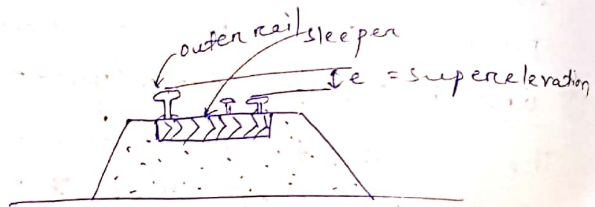 outer rail
sleeper
e = superelevation